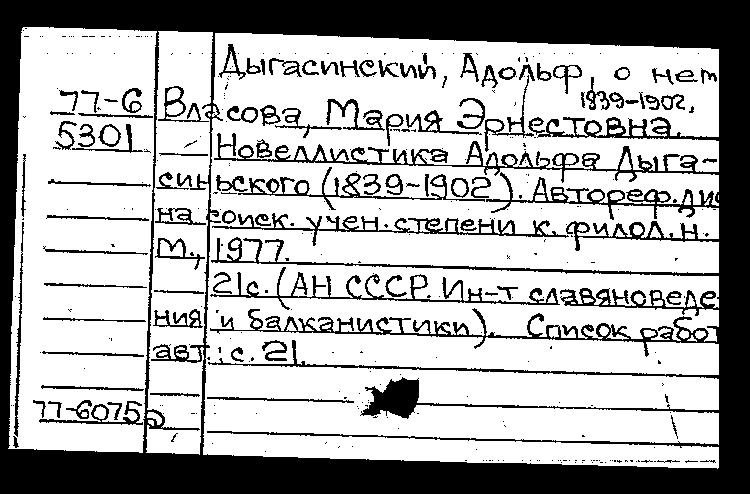 Дыгасинский, Адольф, о нем
1839-1902,
77-6 Власова, Мария Эрнестовна.
5301 Новеллистика Адольфа Дыга-
синьского (1839-1902). Автореф.дис
на соиск. учен. степени к. филол. н.
М., 1977.
21с. (АН СССР. Ин-т славяноведе
ния и балканистики). Список работ
авт.: с. 21.
77-6075